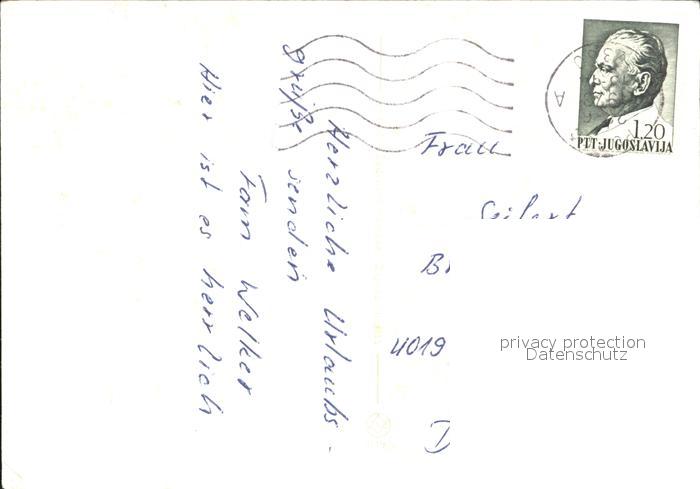 Herzliche Urlaubs-
grüße
senden
Fam Welker
Hier ist es herrlich.
Frau
4019
D
1.20
PTT-JUGOSLAVIJA
A
privacy protection
Datenschutz